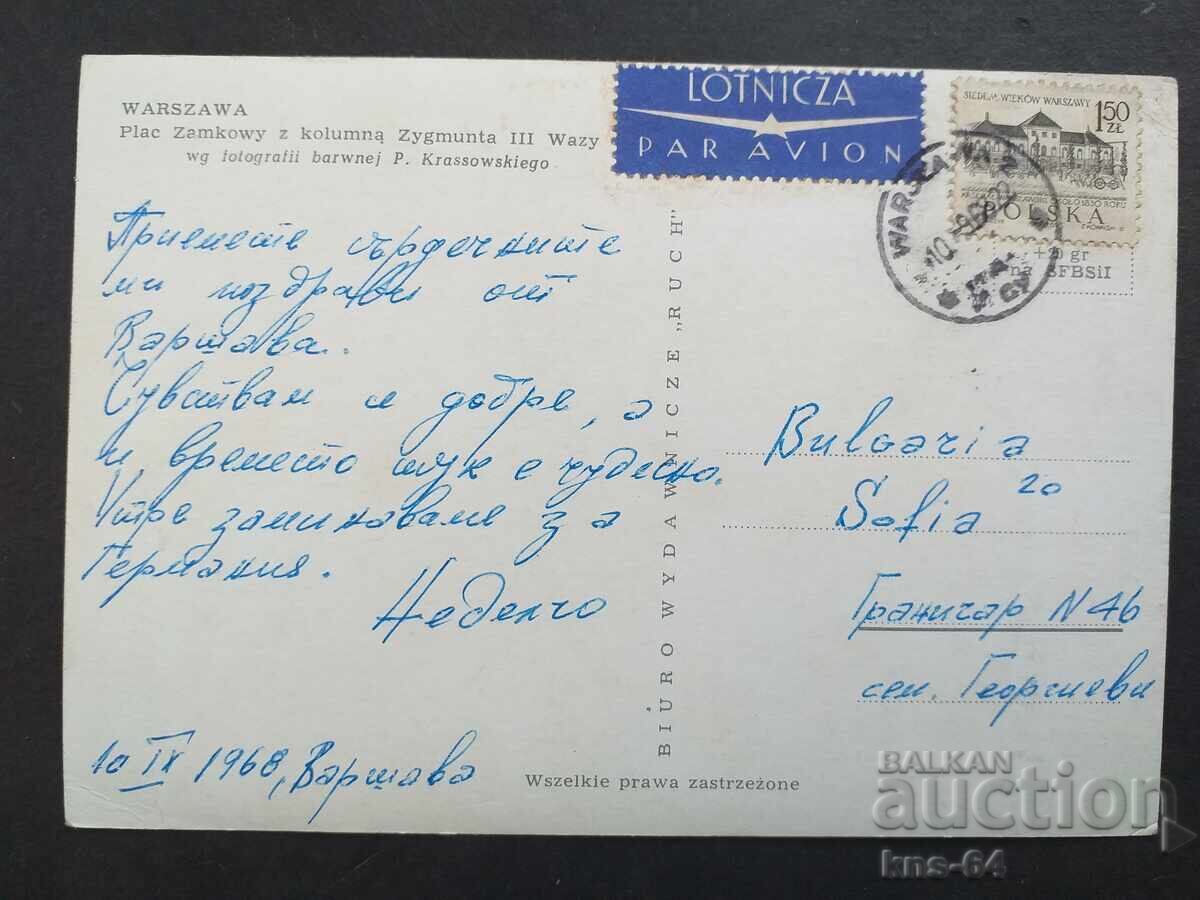 WARSZAWA
Plac Zamkowy z kolumną Zygmunta III Wazy
wg fotografii barwnej P. Krassowskiego
LOTNICZA
PAR AVION
SIEDEM WIEKÓW WARSZAWY
1.50
ZŁ
POLSKA
WARSZAWA
+20 gr
na SFBSiI
Приемете сърдечните
ми поздрави от
Варшава.
Чувствам се добре, а
и времето тук е чудесно.
Утре заминаваме за
Германия.
Неделчо
10 IX 1968, Варшава
BIURO WYDAWNICZE „RUCH"
Bulgaria
Sofia 20
Граничар N 46
сем. Георгиеви
Wszelkie prawa zastrzeżone
BALKAN
auction
kns-64